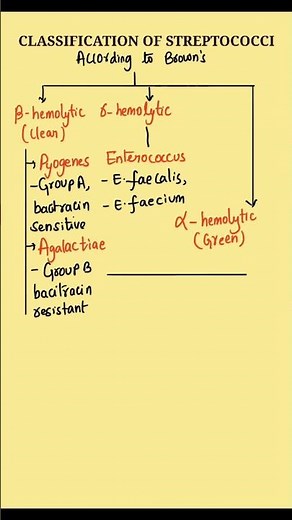 CLASSIFICATION OF STREPTOCOCCI
According to Brown's
β-hemolytic
(Clean)
→ Pyogenes
- Group A,
bactracin
sensitive
→ Agalactiae
- Group B
bacitracin
resistant
γ-hemolytic
Enterococcus
- E. faecalis,
- E. faecium
α-hemolytic
(Green)